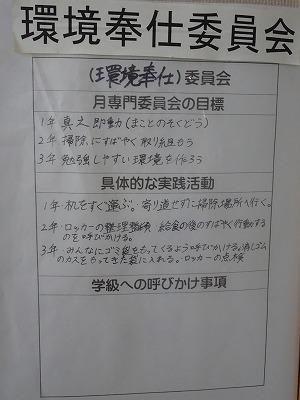 環境奉仕委員会
(環境奉仕)委員会
月専門委員会の目標
1年 真之即動(まことのそくどう)
2年 掃除にすばやく取り組もう
3年 勉強しやすい環境を作ろう
具体的な実践活動
1年・机をすぐ運ぶ。寄り道せずに掃除場所へ行く。
2年・ロッカーの整理整頓 給食の後のすばやく行動する
のを呼びかける。
3年・みんなにゴミ袋をもってくるよう呼びかける。消しゴム
のカスをもってきた袋に入れる。・ロッカーの点検
学級への呼びかけ事項